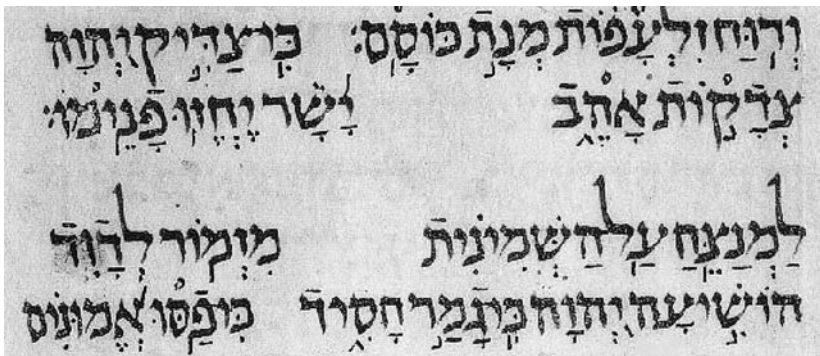 וְר֥וּחַ זִ֝לְעָפ֗וֹת מְנָ֣ת כּוֹסָֽם׃ כִּֽי־צַדִּ֣יק יְ֭הוָה
צְדָק֣וֹת אָהֵ֑ב יָ֝שָׁ֗ר יֶחֱז֥וּ פָנֵֽימוֹ׃
לַמְנַצֵּ֥חַ עַֽל־הַשְּׁמִינִ֗ית מִזְמ֥וֹר לְדָוִֽד
הוֹשִׁ֣יעָה יְ֭הוָה כִּי־גָמַ֣ר חָסִ֑יד כִּי־פַ֥סּוּ אֱ֝מוּנִ֗ים